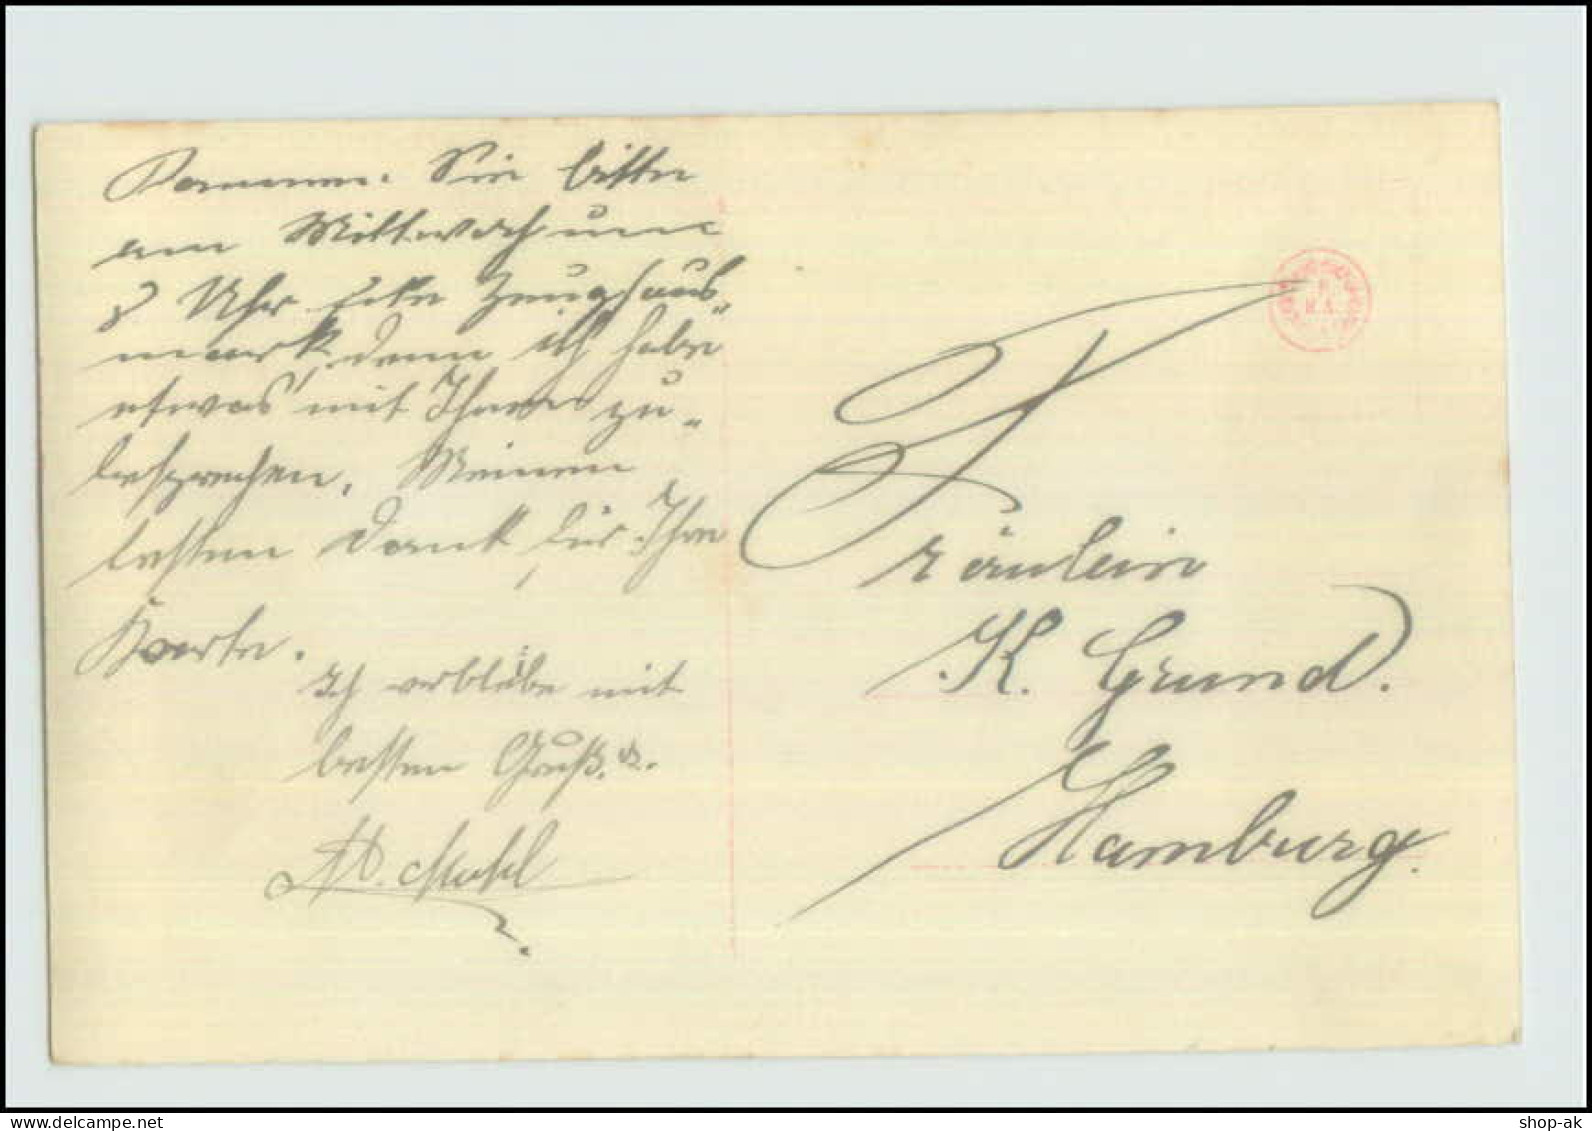 Kommen Sie bitte
am Mittwoch um
8 Uhr Ecke Zeughaus-
mark, denn ich habe
etwas mit Ihnen zu
besprechen. Meinen
besten Dank für Ihre
Karte.
Ich verbleibe mit
besten Gruß
Fräulein
K. Grund.
Hamburg.
shop-ak